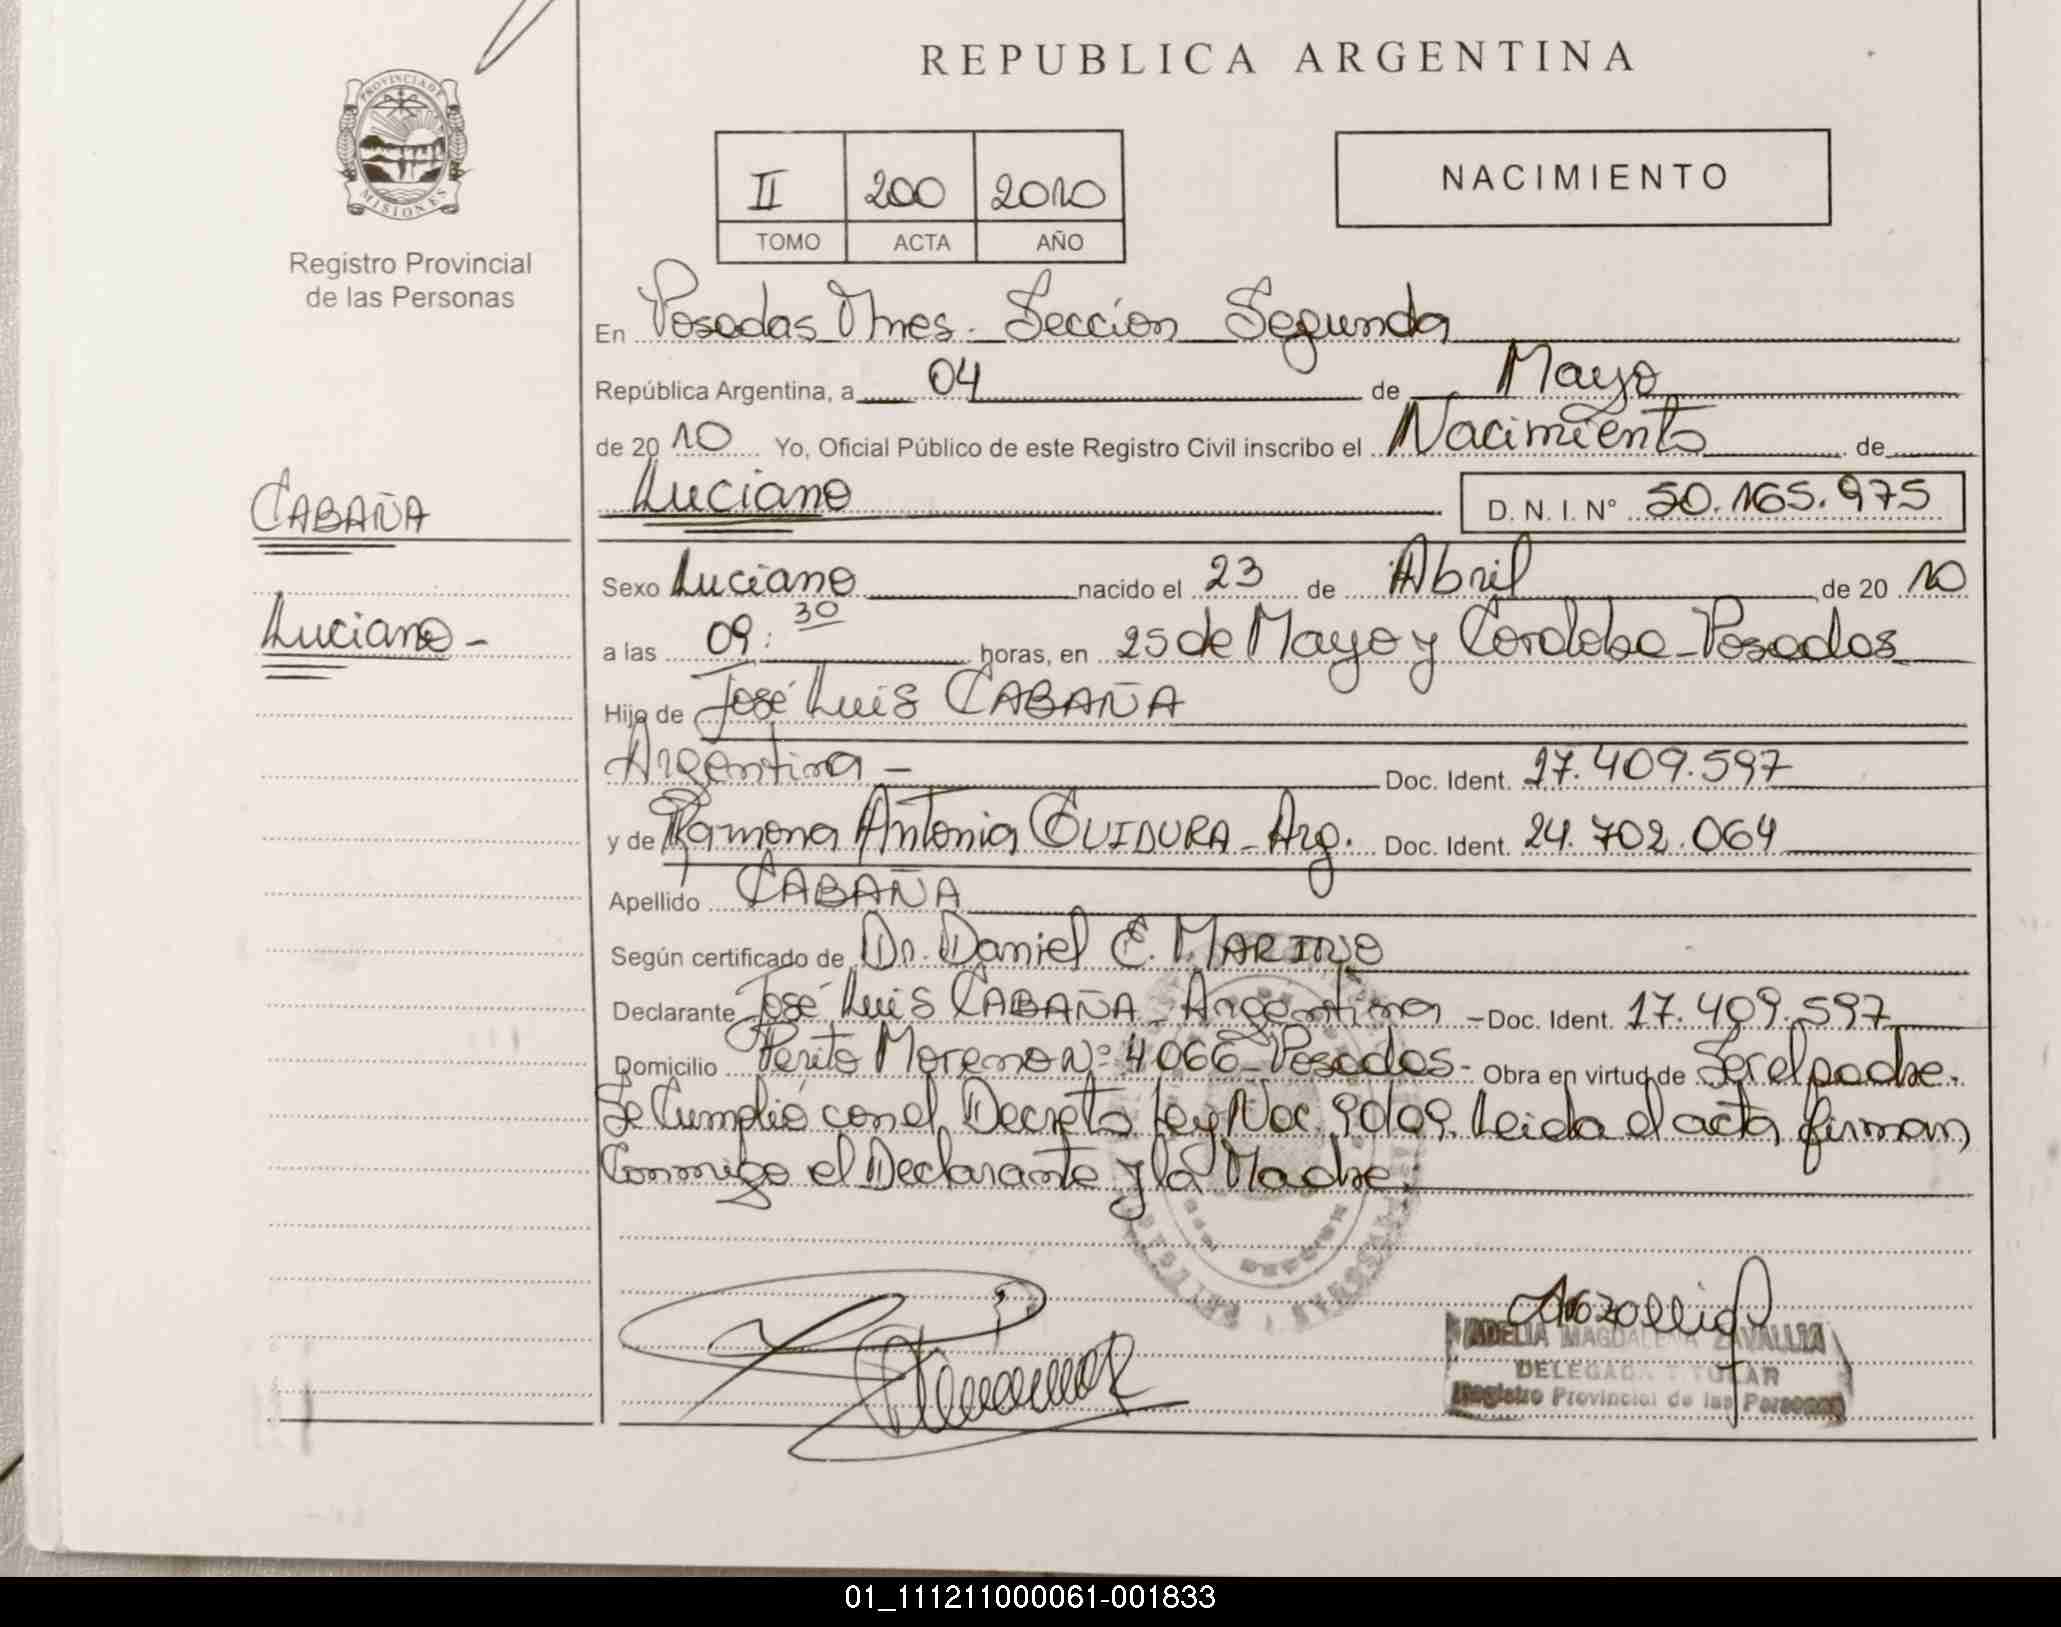 REPUBLICA ARGENTINA
PROVINCIA DE
MISIONES
Registro Provincial
de las Personas
II 200 2010
TOMO ACTA AÑO
NACIMIENTO
En Posadas Mnes. Sección Segunda
República Argentina, a 04 de Mayo
de 2010 Yo, Oficial Público de este Registro Civil inscribo el Nacimiento de
CABAÑA
Luciano -
Luciano D. N. I. N° 50.165.975
Sexo Luciano nacido el 23 de Abril de 2010
a las 09:30 horas, en 25 de Mayo y Cordoba - Posadas
Hijo de José Luis CABAÑA
Argentina - Doc. Ident. 17.409.597
y de Ramona Antonia GUIDURA - Arg. Doc. Ident. 24.702.064
Apellido CABAÑA
Según certificado de Dr. Daniel E. MARINO
Declarante José Luis CABAÑA - Argentina - Doc. Ident. 17.409.597
Domicilio Perito Moreno N° 4066 - Posadas - Obra en virtud de Ser el padre.
Se Cumplió con el Decreto Ley Nac. Leida el acta firman
Conmigo el Declarante y la Madre.
ADELIA MAGDALENA ZAVALLIA
DELEGADA TITULAR
Registro Provincial de las Personas
01_111211000061-001833